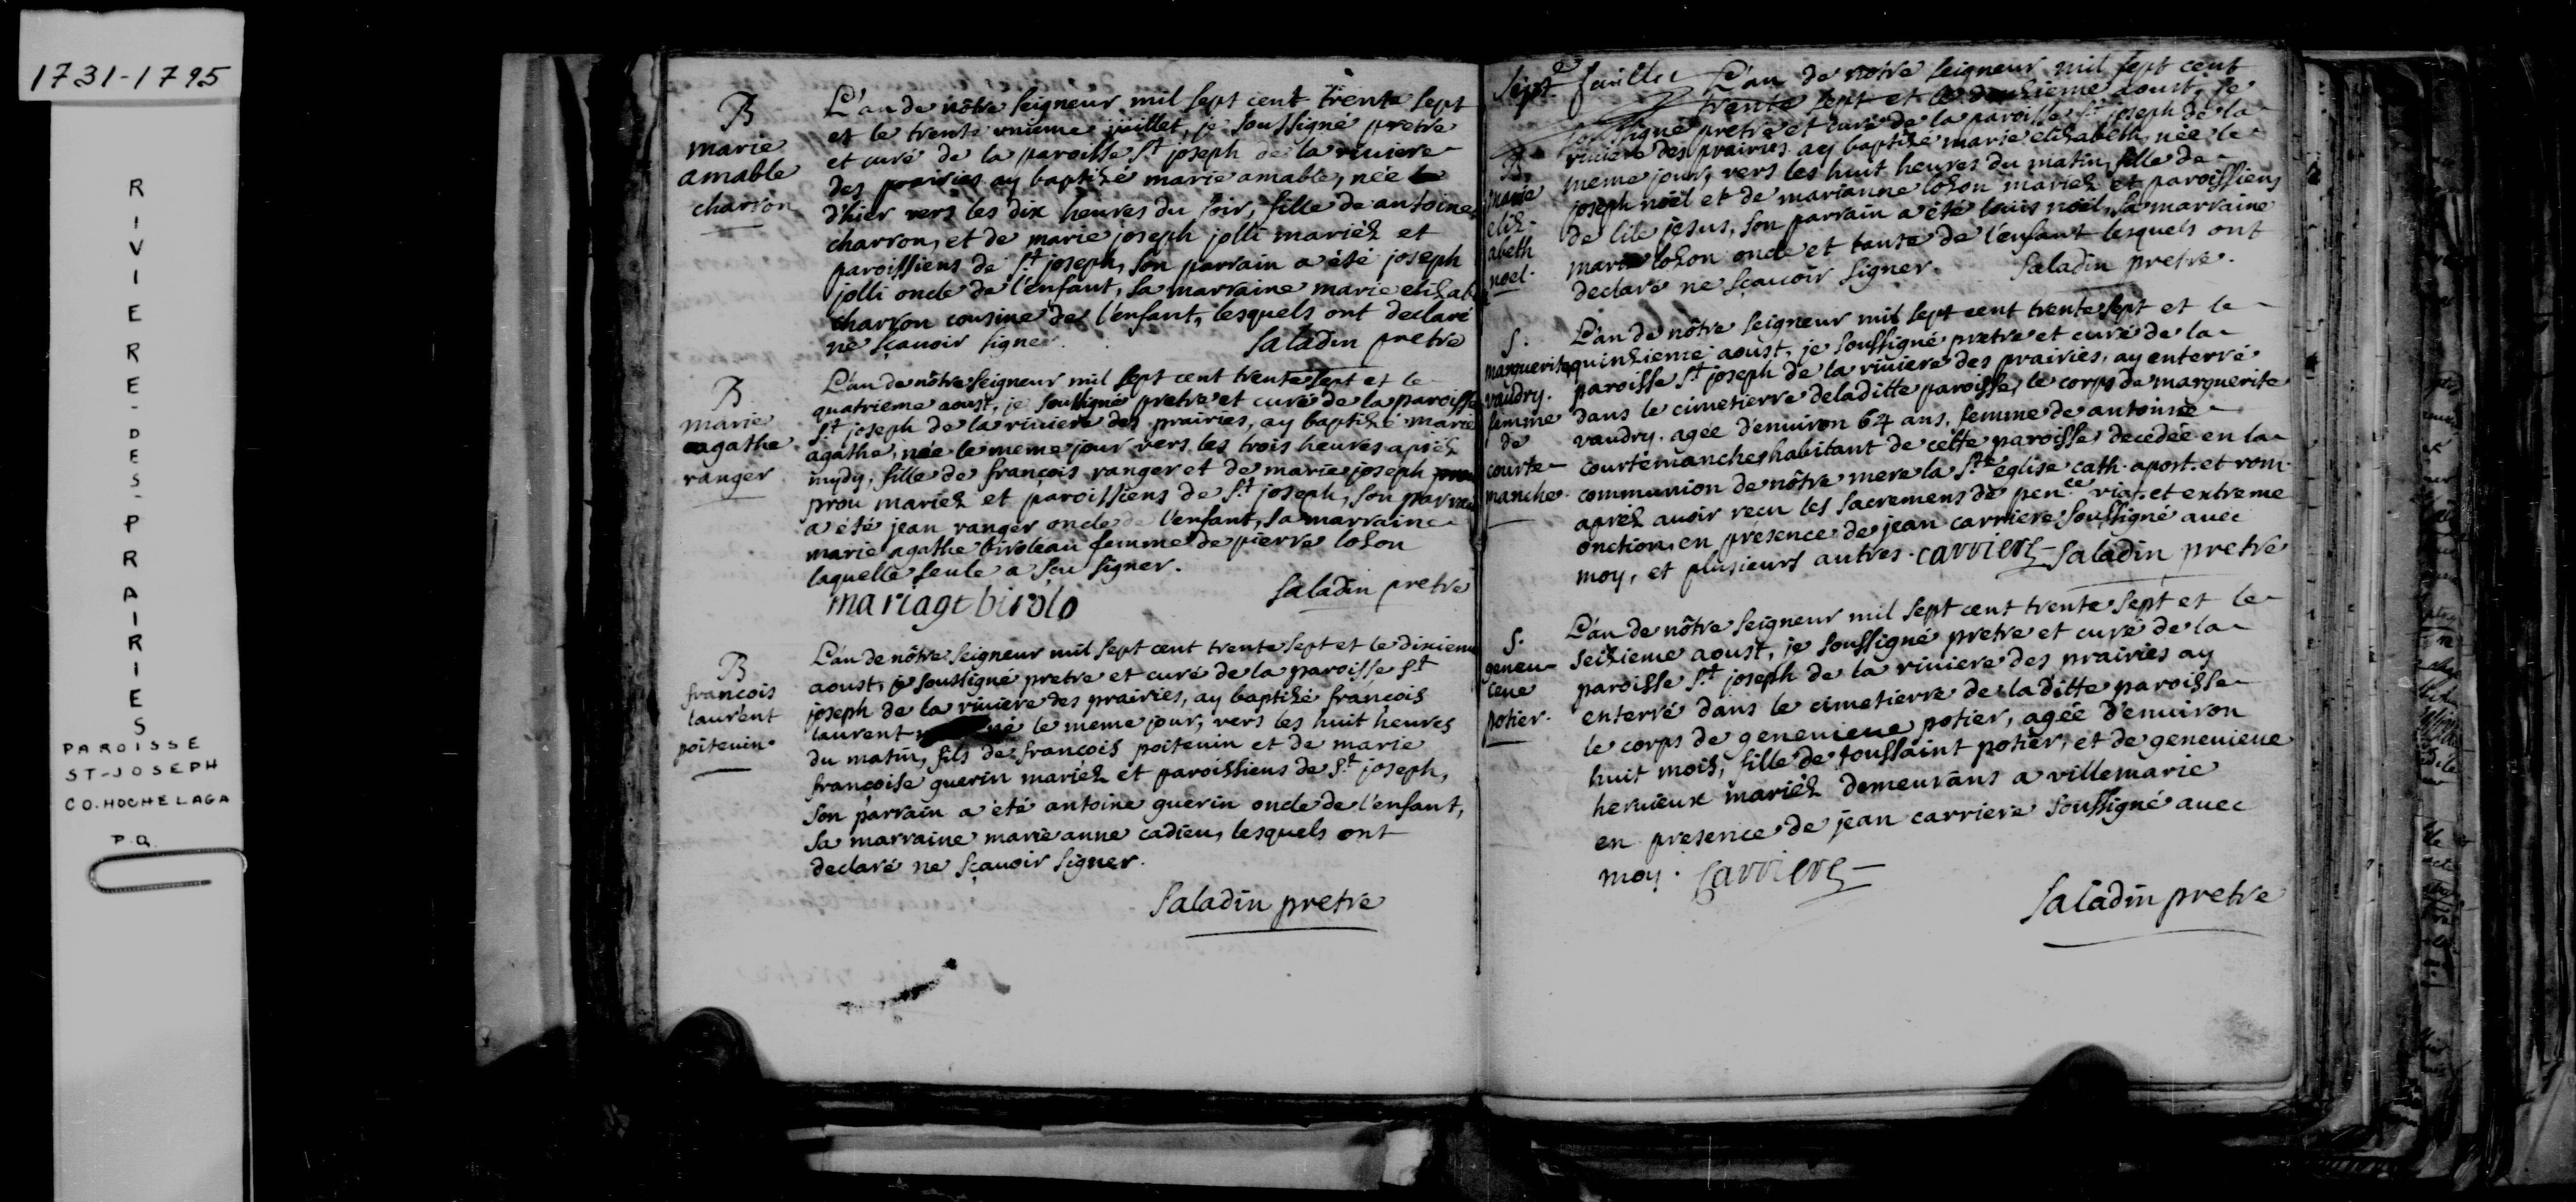 1731-1795
RIVIERE-DES-PRAIRIES
PAROISSE
ST-JOSEPH
CO. HOCHELAGA
P.Q.
B
marie
amable
charron
L'an de nôtre seigneur mil sept cent trente sept
et le trente unieme juillet, je soussigné pretre
et curé de la paroisse St joseph de la riviere
des prairies ay baptizé marie amable, née
d'hier vers les dix heures du soir, fille de antoine
charron, et de marie joseph jolli mariéz et
paroissiens de St joseph, son parrain a été joseph
jolli oncle de l'enfant, sa marraine marie elizab
charron cousine de l'enfant, lesquels ont declaré
ne sçavoir signer. saladin pretre
B
marie
agathe
ranger
L'an de nôtre seigneur mil sept cent trente sept et le
quatrieme aoust, je soussigné pretre et curé de la paroisse
St joseph de la riviere des prairies, ay baptizé marie
agathe, née le meme jour vers les trois heures apréz
mydy, fille de françois ranger et de marie joseph
prou mariéz et paroissiens de St joseph, son parrain
a été jean ranger oncle de l'enfant, sa marraine
marie agathe biroleau femme de pierre lozon
laquelle seule a sçu signer.
mariagt birolo saladin pretre
B
francois
laurent
poitevin
L'an de nôtre seigneur mil sept cent trente sept et le dixieme
aoust, je soussigné pretre et curé de la paroisse St
joseph de la riviere des prairies, ay baptizé francois
laurent né le meme jour, vers les huit heures
du matin, fils de françois poitevin et de marie
françoise guerin mariéz et paroissiens de St joseph,
son parrain a été antoine guerin oncle de l'enfant,
sa marraine marie anne cadieu, lesquels ont
declaré ne sçavoir signer.
saladin pretre
Sept feuillet
B
marie
eliz-
abeth
noel.
L'an de notre seigneur mil sept cent
trente sept et le douzieme aoust, je
soussigné pretre et curé de la paroisse St joseph de la
riviere des prairies ay baptizé marie elizabeth, née le
meme jour, vers les huit heures du matin, fille de
joseph noël et de marianne lozon mariéz et paroissiens
de l'ile jesus, son parrain a été louis noël, sa marraine
marie lozon oncle et tante de l'enfant lesquels ont
declaré ne sçavoir signer. saladin pretre.
S.
marguerite
vaudry.
femme
de
courte-
manche.
L'an de nôtre seigneur mil sept cent trente sept et le
quinzieme aoust, je soussigné pretre et curé de la
paroisse St joseph de la riviere des prairies, ay enterré
dans le cimetierre de laditte paroisse, le corps de marguerite
vaudry. agée d'environ 64 ans, femme de antoine
courtemanche, habitant de cette paroisse, decedée en la
communion de nôtre mere la Ste eglise cath. apost. et rom.
apréz avoir reçu les sacremens de pence viat. et extreme
onction, en présence de jean carriere soussigné avec
moy, et plusieurs autres. carriere saladin pretre
S.
genevi-
eve
potier.
L'an de nôtre seigneur mil sept cent trente sept et le
seizieme aoust, je soussigné pretre et curé de la
paroisse St joseph de la riviere des prairies ay
enterré dans le cimetierre de laditte paroisse
le corps de genevieve potier, agée d'environ
huit mois, fille de toussaint potier, et de genevieve
hervieux mariéz demeurans a villemarie
en presence de jean carriere soussigné avec
moy. carriere
saladin pretre